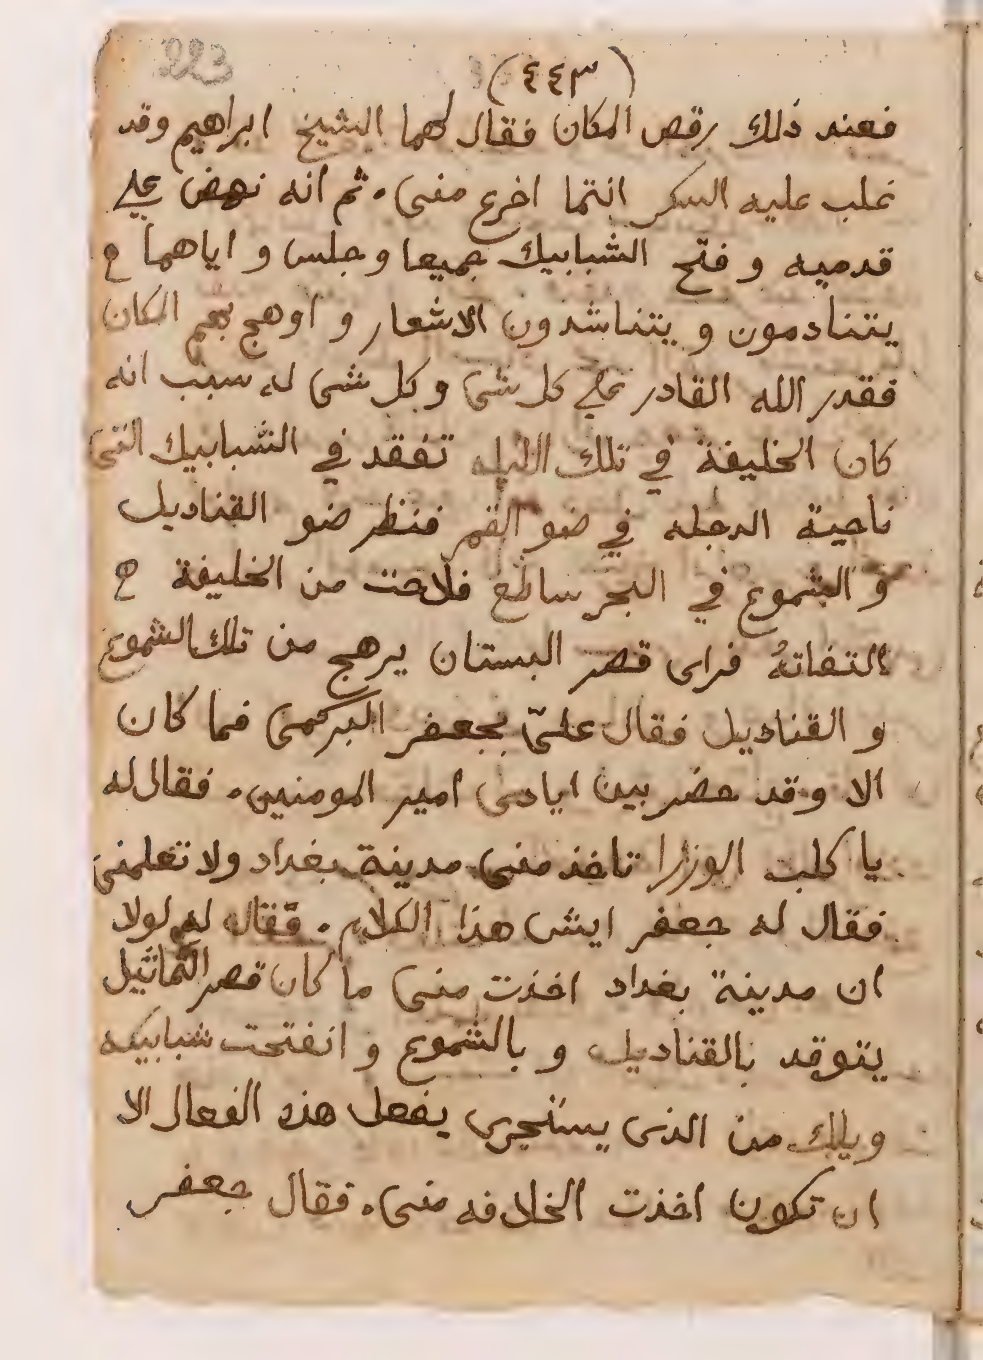 223
(٤٤٣)
فعند ذلك رقص المكان فقال لهما الشيخ ابراهيم وقد
غلب عليه السكر انتما اخرع منى. ثم انه نهض على
قدميه و فتح الشبابيك جميعا وجلس و اياهما
يتنادمون و يتناشدون الاشعار و اوهج بهم المكان
فقدر الله القادر على كل شى وكل شى له سبب انه
كان الخليفة في تلك الليله تفقد في الشبابيك التى
ناحية الدجله في ضو القمر فنظر ضو القناديل
و الشموع في البحر ساطع فلاحت من الخليفة
التفاتهُ فراى قصر البستان يرهج من تلك الشموع
و القناديل فقال علىّ بجعفر البركمى فما كان
الا وقد حضر بين ايادى امير المومنين. فقال له
يا كلب الوزرا تاخذ منى مدينة بغداد ولا تعلمنى
فقال له جعفر ايش هذا الكلام. فقال له لولا
ان مدينة بغداد اخذت منى ما كان قصر التماثيل
يتوقد بالقناديل و بالشموع و انفتحت شبابيكه
ويلك من الذى يستجرى يفعل هذه الفعال الا
ان تكون اخذت الخلافه منى. فقال جعفر